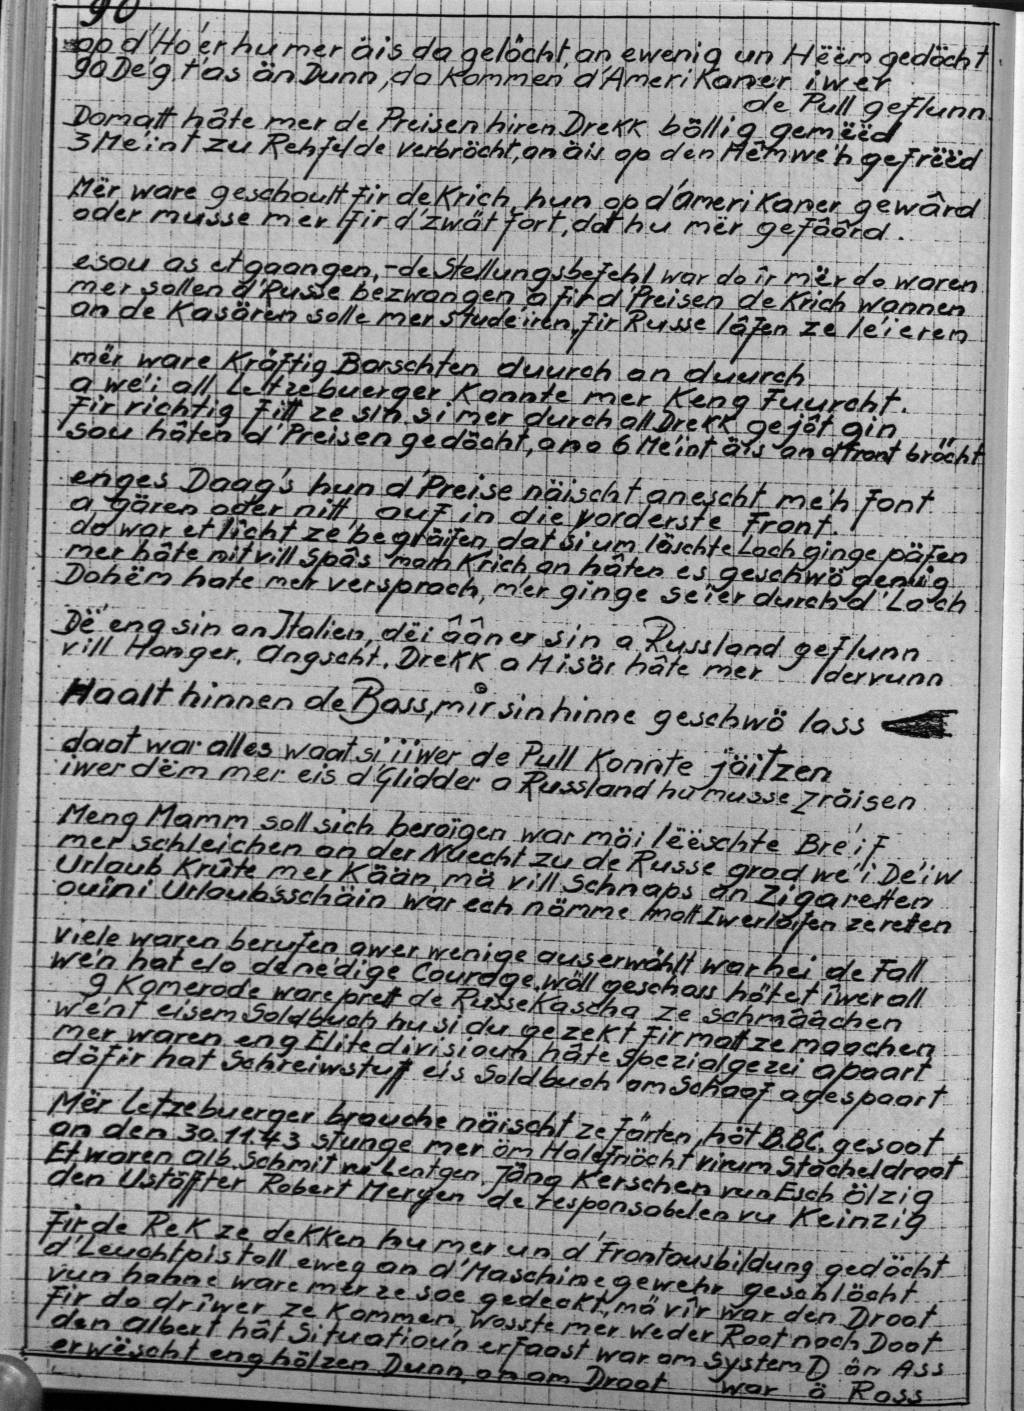 90
op d'Ho'er hu mer äis da gelöcht, an ewenig un Hëëm gedöcht
90 De'g t'as än Dunn, da kommen d'AmeriKaner iwer
de Pull geflunn
Domatt hâte mer de Preisen hiren DreKK böllig gemëëd
3 Me'int zu Rehfelde verbröcht, an äis op den Hêmwe'h gefrëëd
Mër ware geschoult fir de Krich, hun op d'AmeriKaner gewârd
oder musse mer fir d'zwät fort, dat hu mër gefâârd.
esou as et gaangen, - de Stellungsbefehl war do îr mër do waren
mer sollen d'Russe bezwangen a fir d'Preisen de Krich wannen
an de Kasären solle mer stude'iren, fir Russe lâfen ze le'ieren
mër ware Kräftig Borschten duurch an duurch
a we'i all Letzebuerger Kannte mer Keng Fuurcht.
Fir richtig Fitt ze sin, si mer durch all DreKK gejôt gin
sou hâten d'Preisen gedöcht, an a 6 Me'int äis an d'Front bröcht
enges Daag's hun d'Preise näischt anescht me'h font
a gären oder nitt, auf in die vorderste Front.
do war et licht ze begräifen, dat si um läschte Loch ginge päfen
mer hâte nit vill Spâs mam Krich an hâten es geschwö genug
Dohëm hate mer versprach, m'er ginge se'ier durch d'Lach
Dë' eng sin an Italien, dëi âânner sin a Russland geflunn
vill Honger, Angscht, DreKK a Misär hâte mer dervunn
Haalt hinnen de Bass, mir sin hinne geschwö lass
daat war alles waat si iiwer de Pull Konnte jäitzen
iwer dëm mer eis d'Glidder a Russland hu musse zräisen
Meng Mamm soll sich beroïgen war mäi lëëschte Bre'if
mer schleichen an der Nuecht zu de Russe grad we'i De'iw
Urlaub Krûte mer Kään, mä vill Schnaps an Zigaretten
ouini Urlaubsschäin war ech nömme matt Iwerläifen ze retten
viele waren berufen awer wenige auserwählt war hei de Fall
we'n hat elo dene'dige Courage, wöll geschass hötet îwerall
9 Komerode ware prett de Russe Kascha ze schmââchen
we'nt eisem Soldbuch hu si du gezekt fir matt ze maachen
mer waren eng Elitedivisioun hâte Spezialgezei apaart
döfir hat Schreiwstuff eis Soldbuch am Schaaf agespaart
Mër Letzebuerger brauche näischt ze färten, höt B.B.C. gesoot
an den 30.11.43 stunge mer öm Halefnöcht virum Stacheldroot
Et waren Alb. Schmit vu Lentgen, Jäng Kerschen vun Esch ölzig
den Ustöffter Robert Mergen de responsabelen vu Keinzig
Fir de ReK ze deKKen hu mer un d'Frontausbildung gedöcht
d'Leuchtpistoll eweg an d'Maschinegewehr geschlöcht
vun hanne ware mer ze soe gedeckt, mä vîr war den Droot
Fir do drîwer ze Kommen, wosste mer weder Root noch Doot
den Albert hât Situatioun erfaast war am System D ön Ass
erwëscht eng hölzen Dunn, an am Droot war ö Rass